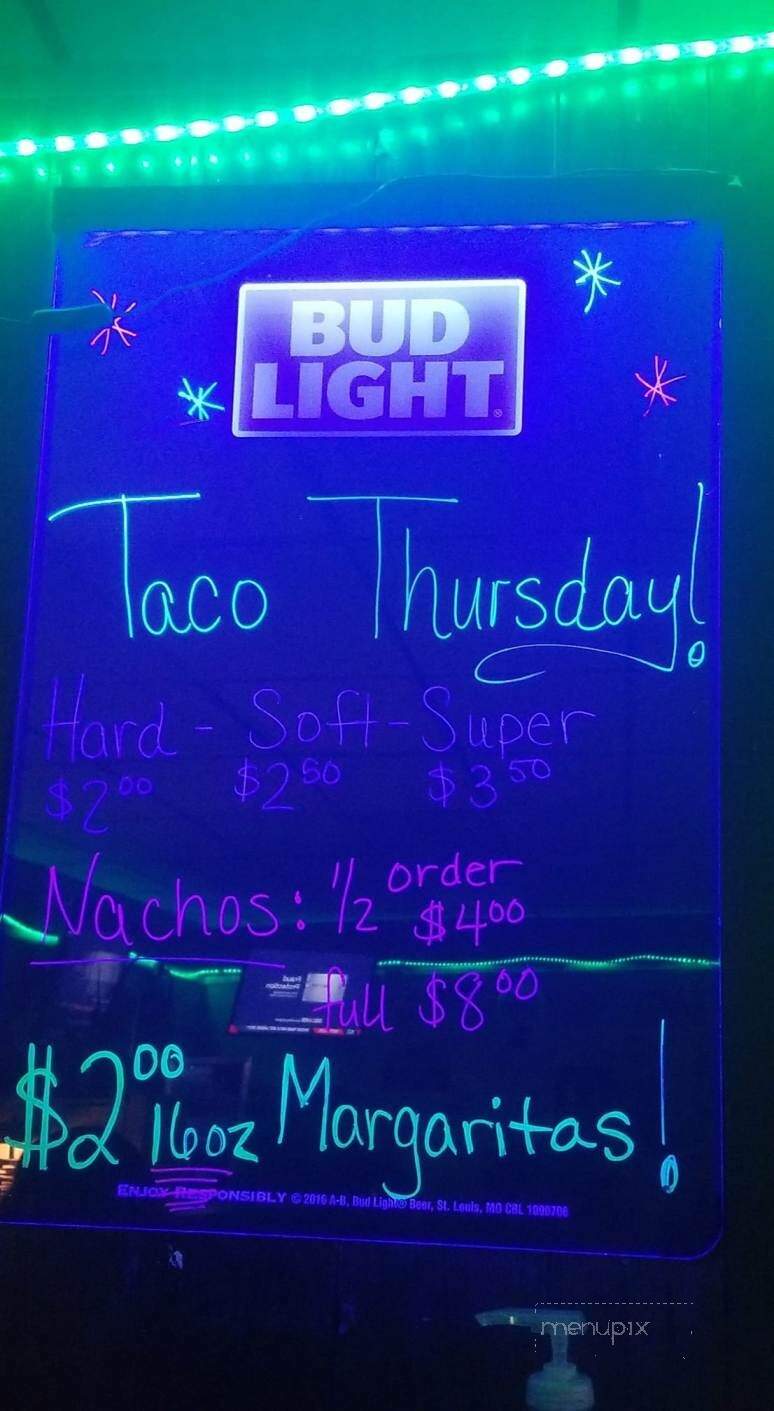 BUD
LIGHT
Taco Thursday!
Hard - Soft - Super
$2.00 $2.50 $3.50
Nachos: 1/2 order
$4.00
full $8.00
$2.00 16oz Margaritas!
ENJOY RESPONSIBLY © 2016 A-B, Bud Light® Beer, St. Louis, MO CBL 1090706
menupix